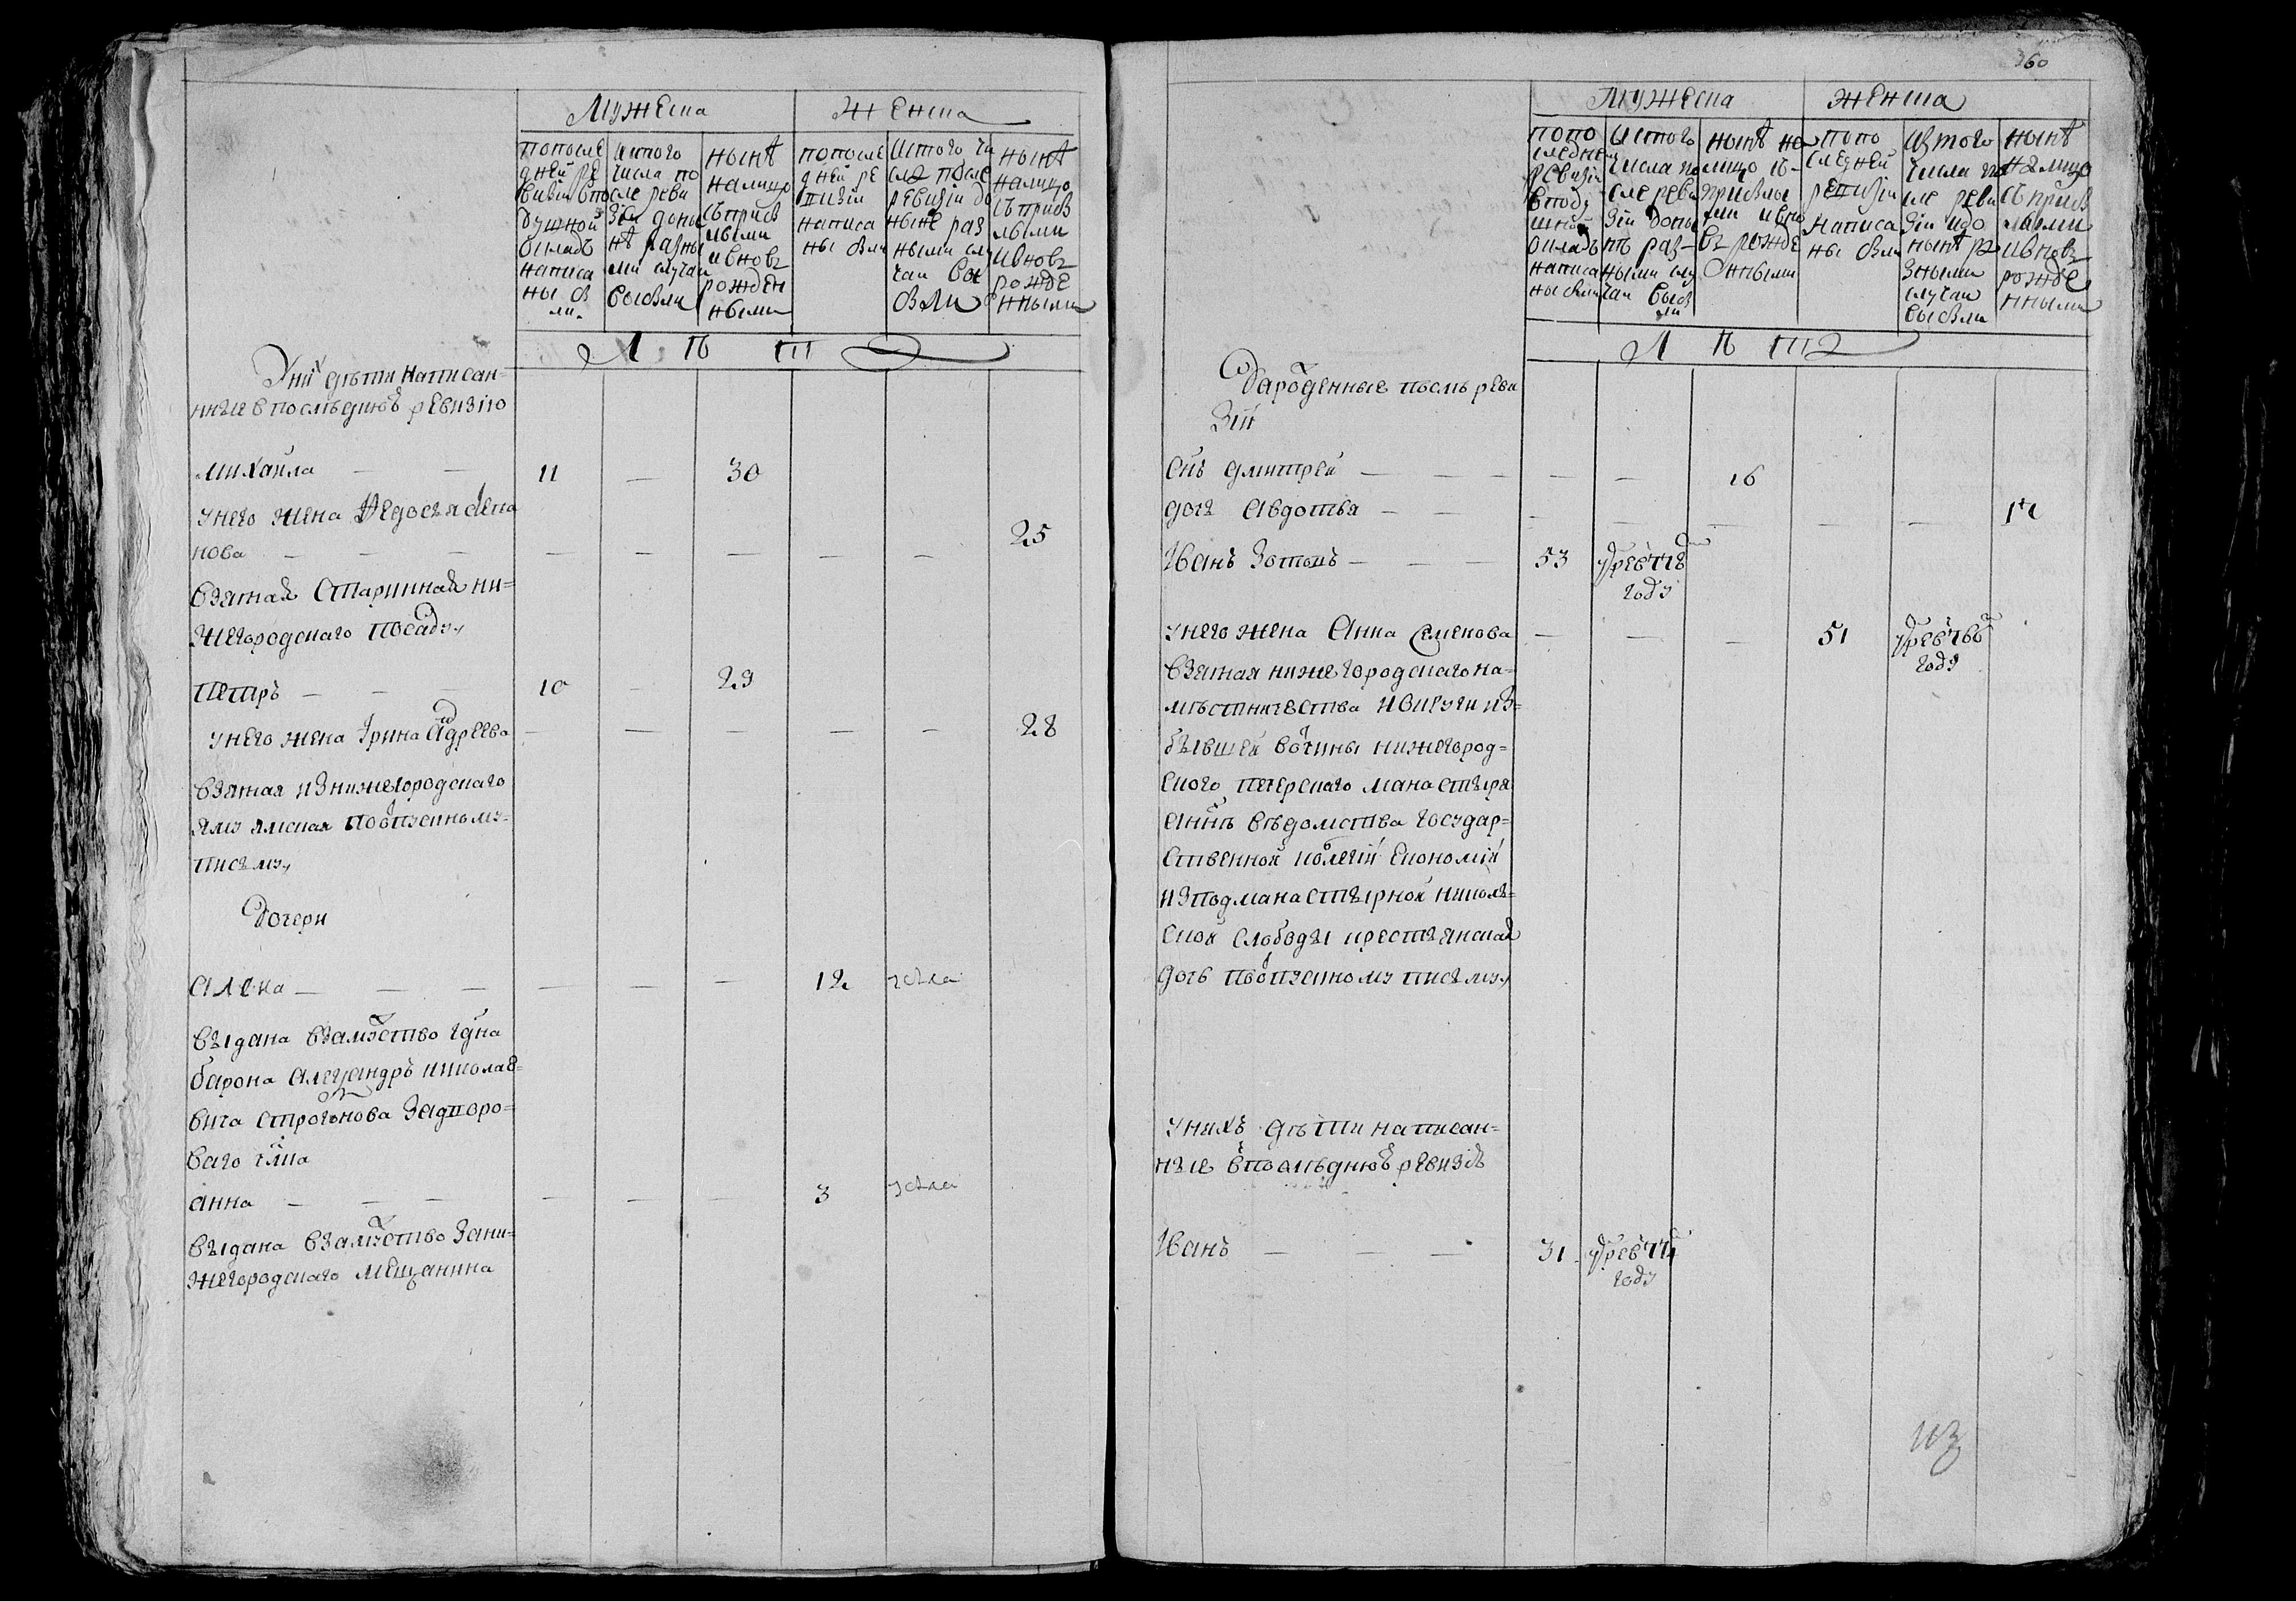 Мужеска
Женска
попосле
дней ре
визiи впо
душной
окладъ
написа
ны бы
ли
истого
числа по
сле реви
зiи доны
нѣ разны
ми случаи
выбыли
нынѣ
налицо
съприбы
лыми
ивновъ
рожден
ными
попосле
дней ре
визiи
написа
ны были
истого чи
сла после
ревизiи до
ныне раз
ными слу
чаи вы
были
нынѣ
налицо
съприбы
лыми
ивновъ
рожде
нными
Л ѣ т а
Унихъ дѣти написан=
ныя впоследнюю ревизiю
михайла — — 11 — 30
унего жена Ѳедосья степа
нова — — — — — — — — 25
взятая старинная ни=
жегородскаго посаду
петръ — — — 10 — 29
унего жена Ирина андреева — — — — — 28
взятая изнижегородскаго
яму ямская поотпускному
писму
дочери
Алена — — — — — — 12 усѣка
выдана взамужство г҃дна
барона александръ николае=
вича строгонова задворо=
ваго члвка
анна — — — — — — 3 усѣка
выдана взамужство зани=
жегородскаго мещанина
360
Мужеска
женска
попо
следней
ревизiи
вподу
шной
окладъ
написа
ны были
истого
числа по
сле реви
зiи доны
нѣ раз=
ными слу
чаи выбы
ли
нынѣ на
лицо съ
прибылы
ми ивно
въ рожде
нными
попо
следней
ревизiи
написа
ны были
изтого
числа по
сле реви
зiиидо
нынѣ ра
зными
случаи
выбыли
нынѣ
налицо
съприбы
лыми
ивновъ
рожде
нными
Л ѣ т а
рожденные после реви
зiи
снъ дмитрей — — — — — 16
дочь авдотья — — — — — — — — 14
Иванъ Зотовъ — — — 53 умре в
году
унего жена Анна Семенова — — — 51 умре в
году
взятая нижегородскаго на=
местничества иокруги из=
бывшей вотчины нижегород=
скаго печерскаго манастыря
аннѣ ведомства государ=
ственной колегiи економiи
изподманастырной николь=
ской слободы крестьянская
дочь поотпускному писму
унихъ дѣти написан=
ные впоследнюю ревизiю
Иванъ — — — 31 умре в
году